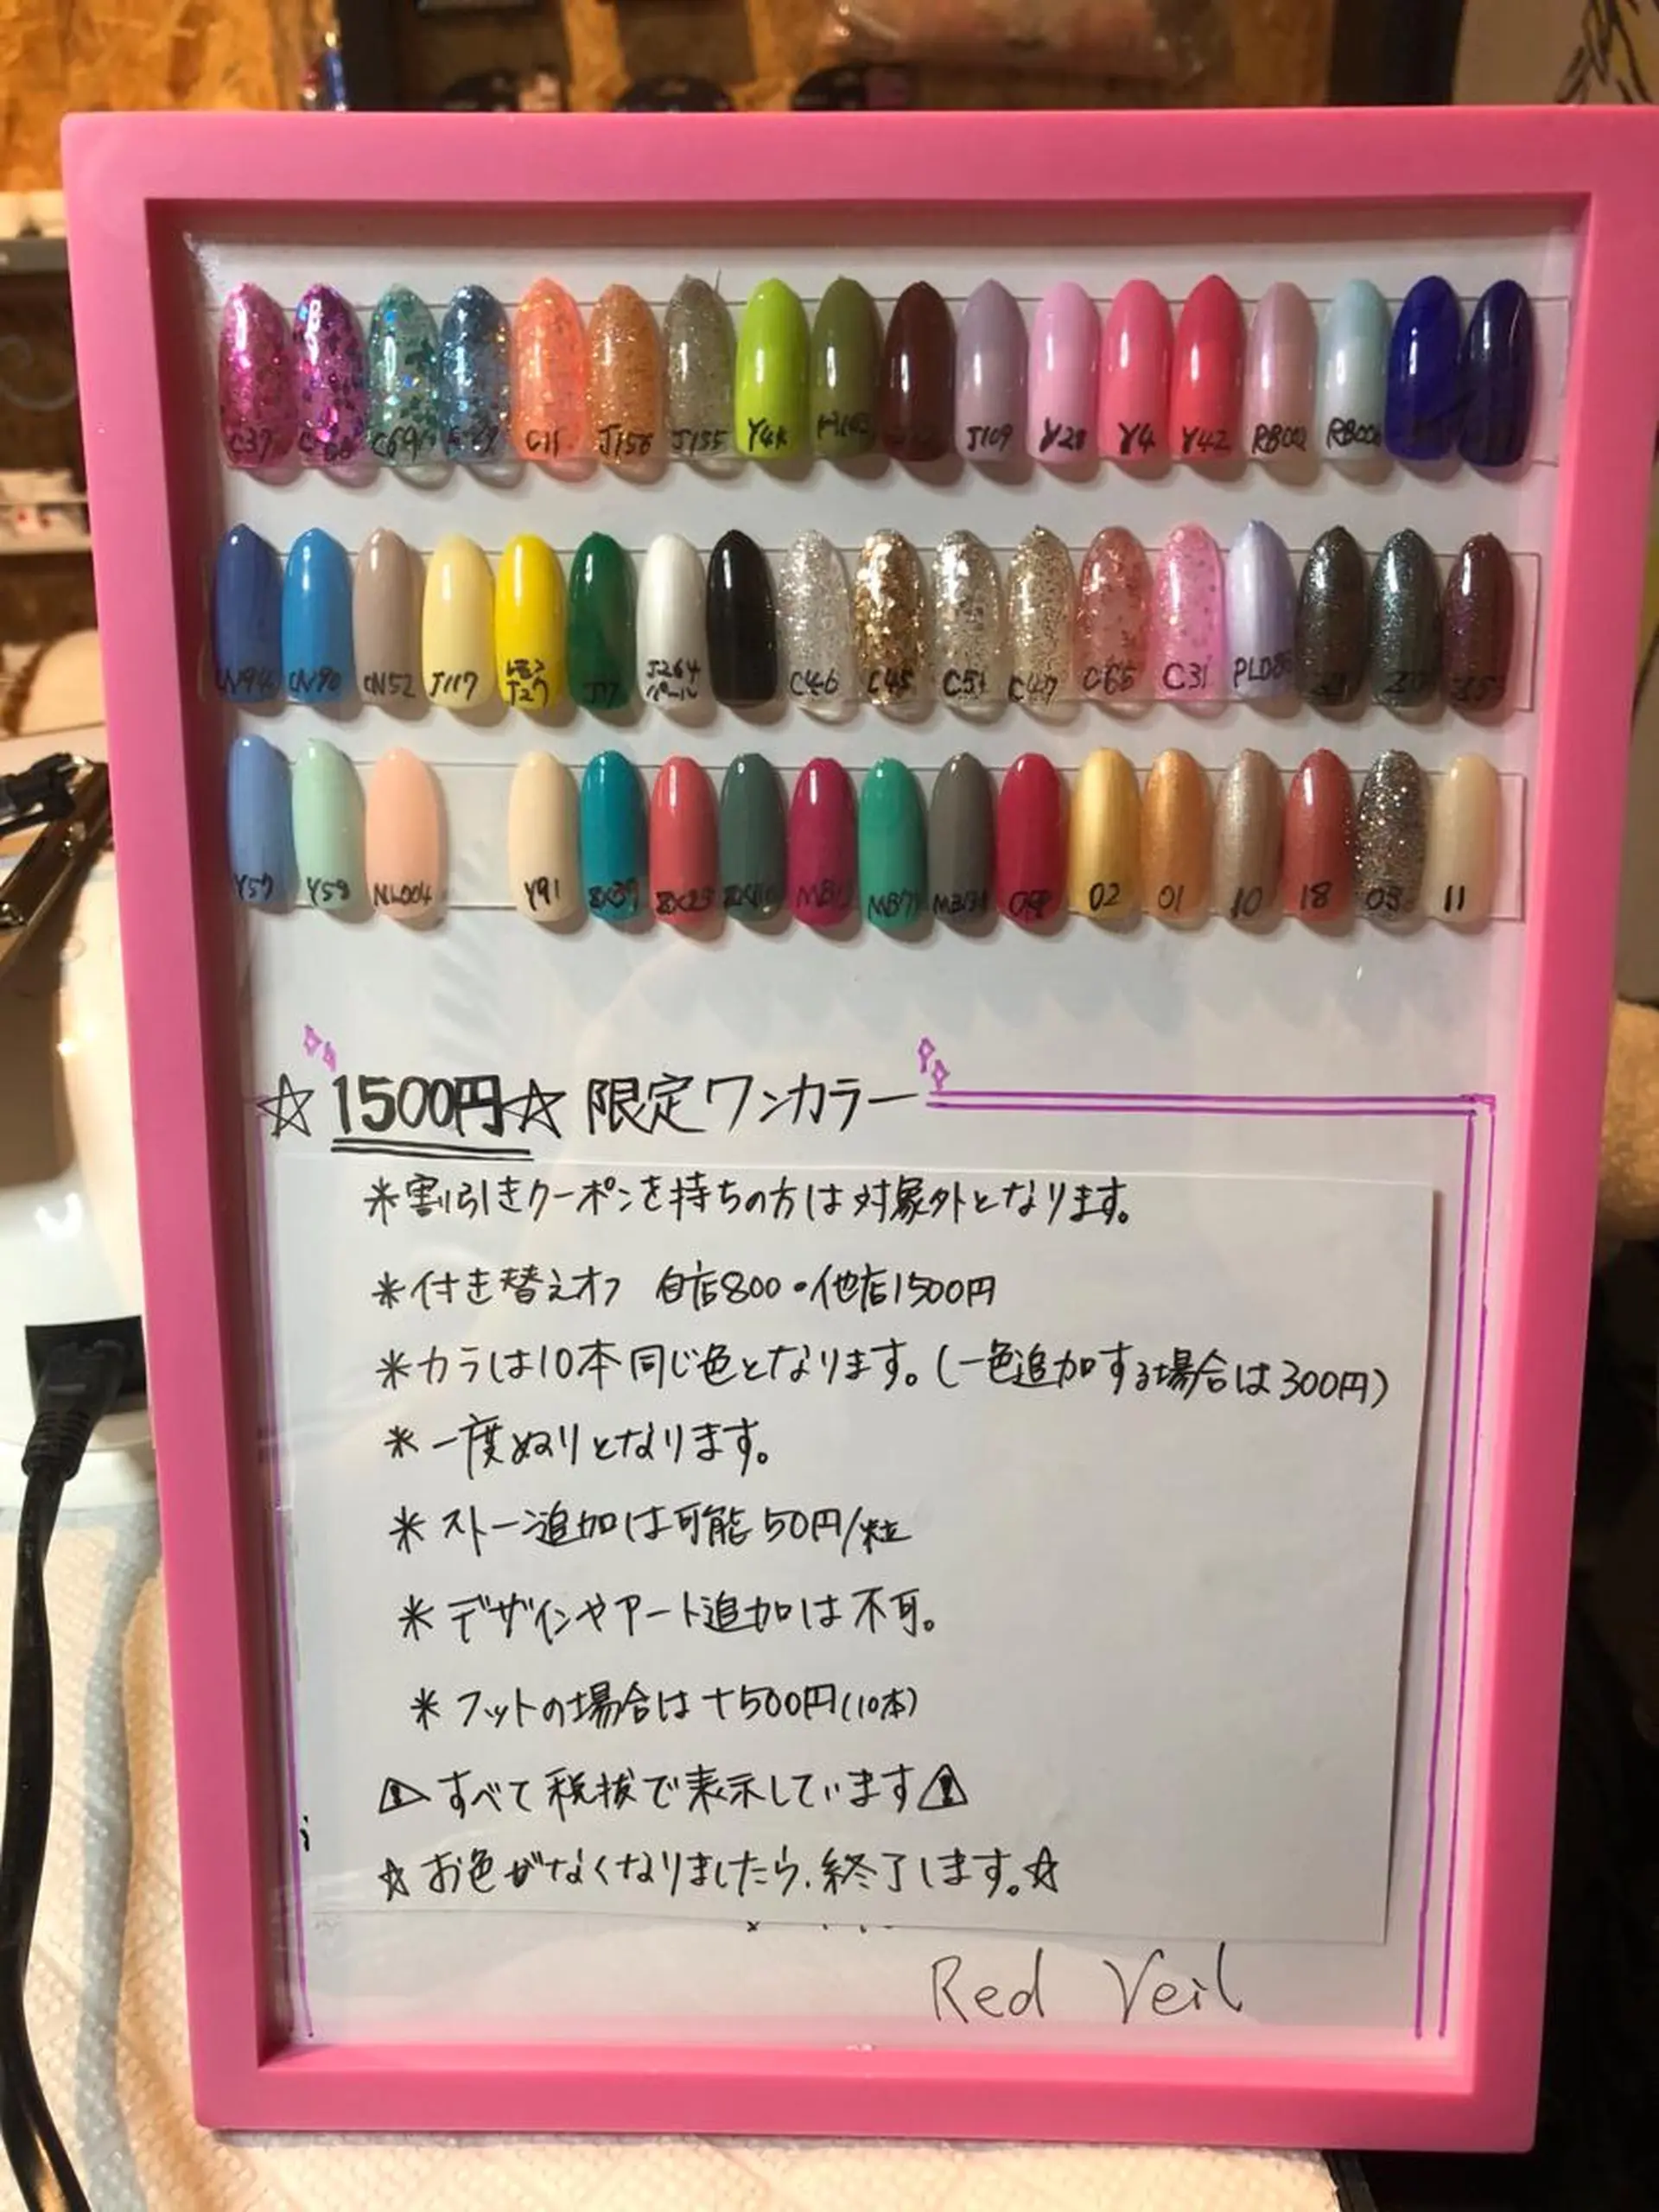 C37 C69 C11 J156 J155 Y4 J109 Y28 Y4 Y42 RB002
CN52 J117 J27 J264 パール C46 C45 C51 C47 C65 C31
Y57 Y58 NL004 Y91 02 01 10 18 03 11
☆1500円☆ 限定ワンカラー
*割引きクーポンを持ちの方は対象外となります。
*付き替えオフ 自店800・他店1500円
*カラは10本同じ色となります。(一色追加する場合は300円)
*一度ぬりとなります。
*ストーン追加は可能 50円/粒
*デザインやアート追加は不可。
*フットの場合は+500円(10本)
⚠すべて税抜で表示しています⚠
☆お色がなくなりましたら、終了します。☆
Red Veil